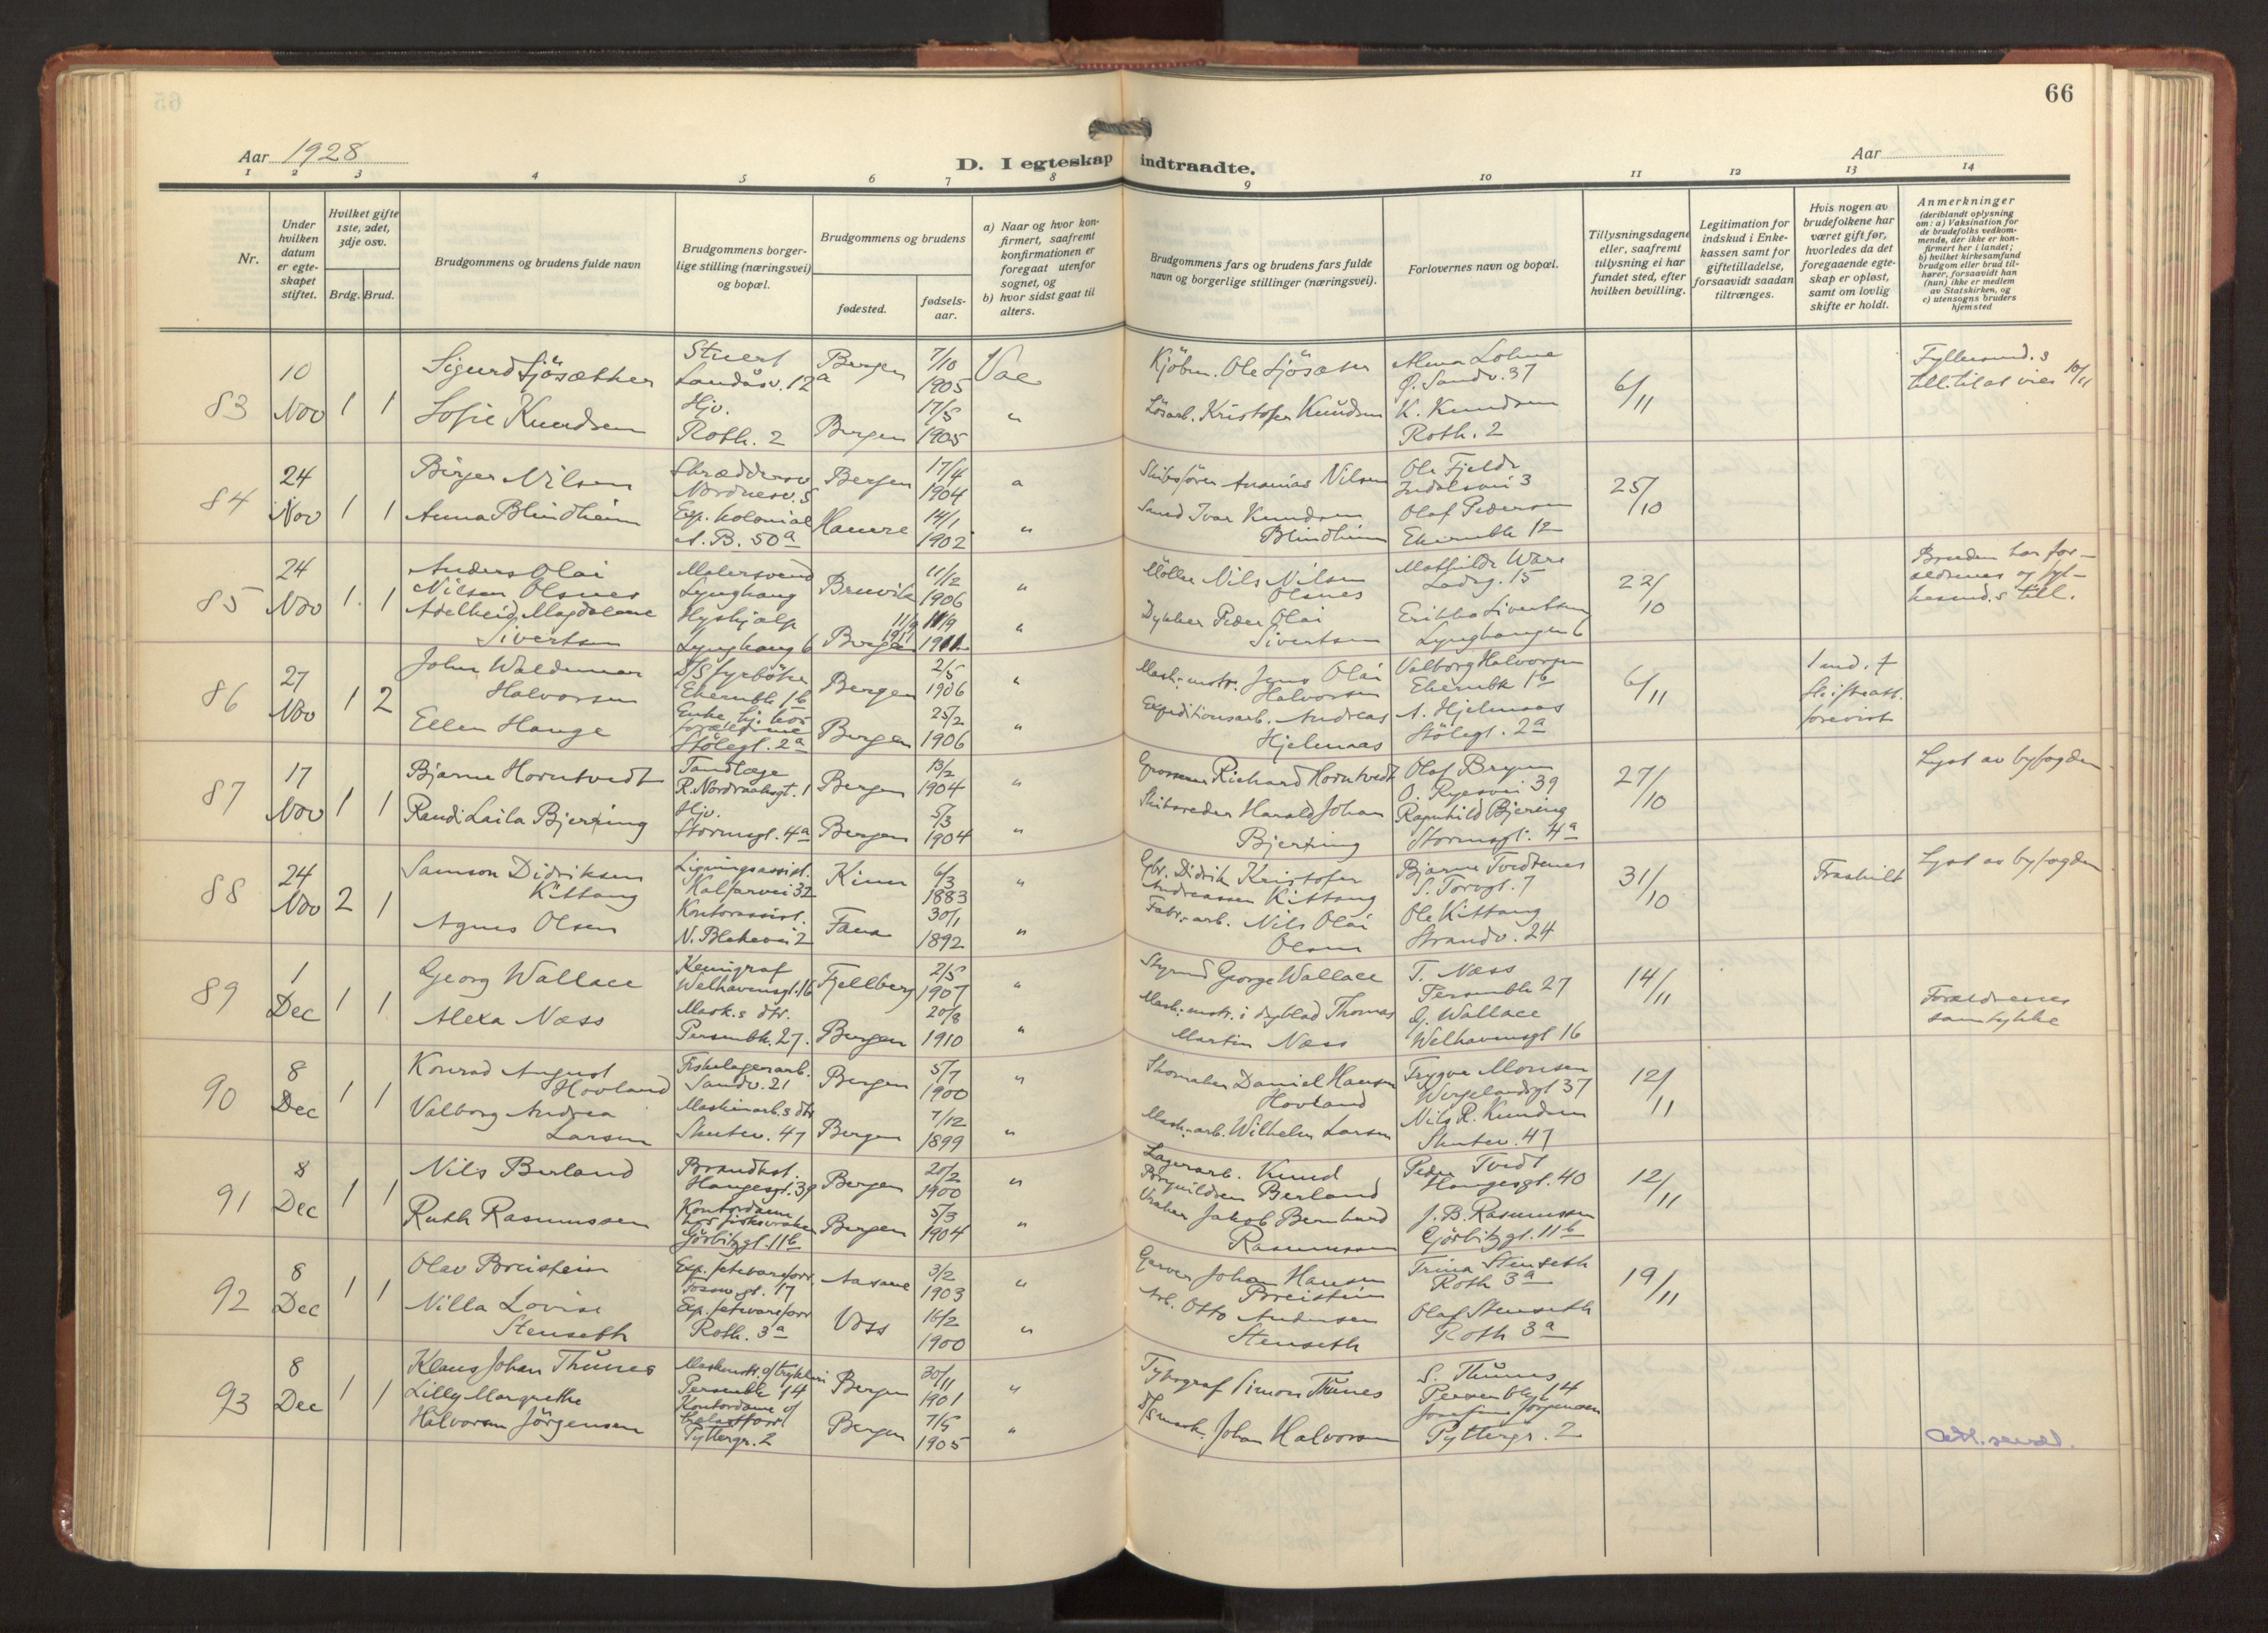 65
66
Aar 1928
D. I egteskap indtraadte.
Aar
1 2 3 4 5 6 7 8 9 10 11 12 13 14
Nr.
Under hvilken datum er egteskapet stiftet.
Hvilket gifte 1ste, 2det, 3dje osv.
Brdg. Brud.
Brudgommens og brudens fulde navn
Brudgommens borgerlige stilling (næringsvei) og bopæl.
Brudgommens og brudens
fødested.
fødselsaar.
a) Naar og hvor konfirmert, saafremt konfirmationen er foregaat utenfor sognet, og
b) hvor sidst gaat til alters.
Brudgommens fars og brudens fars fulde navn og borgerlige stillinger (næringsvei).
Forlovernes navn og bopæl.
Tillysningsdagene eller, saafremt tillysning ei har fundet sted, efter hvilken bevilling.
Legitimation for indskud i Enkekassen samt for giftetilladelse, forsaavidt saadan tiltrænges.
Hvis nogen av brudefolkene har været gift før, hvorledes da det foregaaende egteskap er opløst, samt om lovlig skifte er holdt.
Anmerkninger
(deriblandt oplysning om: a) Vaksination for de brudefolks vedkommende, der ikke er konfirmert her i landet; b) hvilket kirkesamfund brudgom eller brud tilhører, forsaavidt han (hun) ikke er medlem av Statskirken, og c) utensogns bruders hjemsted
83 10 Nov 1 1
Sigurd Sjösæther Stuert Landåsv. 12a Bergen 7/10 1905 Vac
Sofie Knudsen Hjv. Roth. 2 Bergen 17/5 1905 "
Kjöbm. Ole Sjösæter
Lösarb. Kristofer Knudsen
Alma Lohne Ø. Sandv. 37
K. Knudsen Roth. 2
6/11
10/11
84 24 Nov 1 1
Birger Nilsen Skræddersv Nordnesv. 5 Bergen 17/4 1904
Anna Blindheim Exp. kolonial A.B. 50a 14/1 1902 "
Skibsförer Ananias Nilsen
Ivar Knudsen Blindheim
Ole Fjelde 3
Olaf Pedersen 12
25/10
85 24 Nov 1 1
Anders Olai Nilsen Olsnes Malersvend Lynghaug Bruvik 11/12 1906 "
Adelheid Magdalene Sivertsen Hushjælp Lynghaug 6 Bergen 11/9 1911 "
Möller Nils Nilsen Olsnes
Dykker Peder Olai Sivertsen
Mathilde Ware Ladeg. 15
Erikka Sivertsen Lynghaugen 6
22/10
Bruden har forældrenes og till.
86 27 Nov 1 2
John Waldemar Halvorsen D/S fyrböter 1b Bergen 2/5 1906 "
Ellen Hauge Enke, hj. hos forældrene Stölegt. 2a Bergen 25/2 1906 "
Mask.mstr. Jens Olai Halvorsen
Expeditionsarb. Andreas Hjelmaas
Valborg Halvorsen 1b
A. Hjelmaas Stölegt. 2a
6/11
1 md. † Skifteatt. forevist
87 17 Nov 1 1
Bjarne Horntvedt Tandlæge R. Nordraaksgt. 1 Bergen 13/2 1904 "
Randi Laila Bjerring Hjv. Stormsgt. 4a Bergen 5/3 1904 "
Grosserer Richard Horntvedt
Skibsreder Harald Johan Bjerring
Olaf Bryn O. Ryesvei 39
Ragnhild Bjering Stormsgt. 4a
27/10
Lyst av byfogden
88 24 Nov 2 1
Samson Didriksen Kittang Ligningsassist. Kalfarvei 32 Kinn 6/3 1883 "
Agnes Olsen Kontorassist. N. Blekevei 2 Fana 30/1 1892 "
Gbr. Didrik Kristofer Andreassen Kittang
Fabr.arb. Nils Olai Olsen
Bjarne Tvedtenes S. Torvgt. 7
Ole Kittang Strandv. 24
31/10
Fraskilt
Lyst av byfogden
89 1 Dec 1 1
Georg Wallace Kemigraf Welhavensgt. 16 Fjellberg 2/5 1907 "
Alexa Næss Mask.s dtr. Persenbk. 27. Bergen 20/8 1910 "
Styrmd George Wallace
Mask.mstr. i dagblad Thomas Martin Næss
T. Næss Persenbk 27
G. Wallace Welhavensgt 16
14/11
Forældrenes samtykke
90 8 Dec 1 1
Konrad August Hovland Fiskelagerarb. Sandv. 21 Bergen 5/7 1900 "
Valborg Andrea Larsen Maskinarb.s dtr Skutev. 47 Bergen 7/12 1899 "
Skomaker Daniel Hansen Hovland
Mask.arb. Wilhelm Larsen
Trygve Monsen Wergelandsgt 37
Nils R. Knudsen Skutev. 47
12/11
91 8 Dec 1 1
Nils Berland Brandkst. Haugesgt. 39 Bergen 20/2 1900 "
Ruth Rasmussen Kontordame hos fiskevraker Görbitzgt. 11b Bergen 5/3 1904 "
Lagerarb. Knud Berland
Vraker Jakob Bernhard Rasmussen
Peder Tvedt Haugesgt. 40
J. B. Rasmussen Görbitzgt. 11b
12/11
92 8 Dec 1 1
Olav Breistein Exp. fetevareforr. 17 Aasane 3/2 1903 "
Nilla Lovise Stenseth Exp. fetevareforr Roth. 3a Voss 16/2 1900 "
Garver Johan Hansen Breistein
Arb. Otto Andersen Stenseth
Trina Stenseth Roth 3a
Olaf Stenseth Roth 3a
19/11
93 8 Dec 1 1
Klaus Johan Thunes Maskmstr. v/ trykkeri Persenbk 14 Bergen 30/11 1901 "
Lilly Margrethe Halvorsen Jörgensen Kontordame v/ Pyttergr. 2 Bergen 7/5 1905 "
Typograf Simon Thunes
D/S mask. Johan Halvorsen
S. Thunes Persenbk 14
Josefine Jörgensen Pyttergr. 2